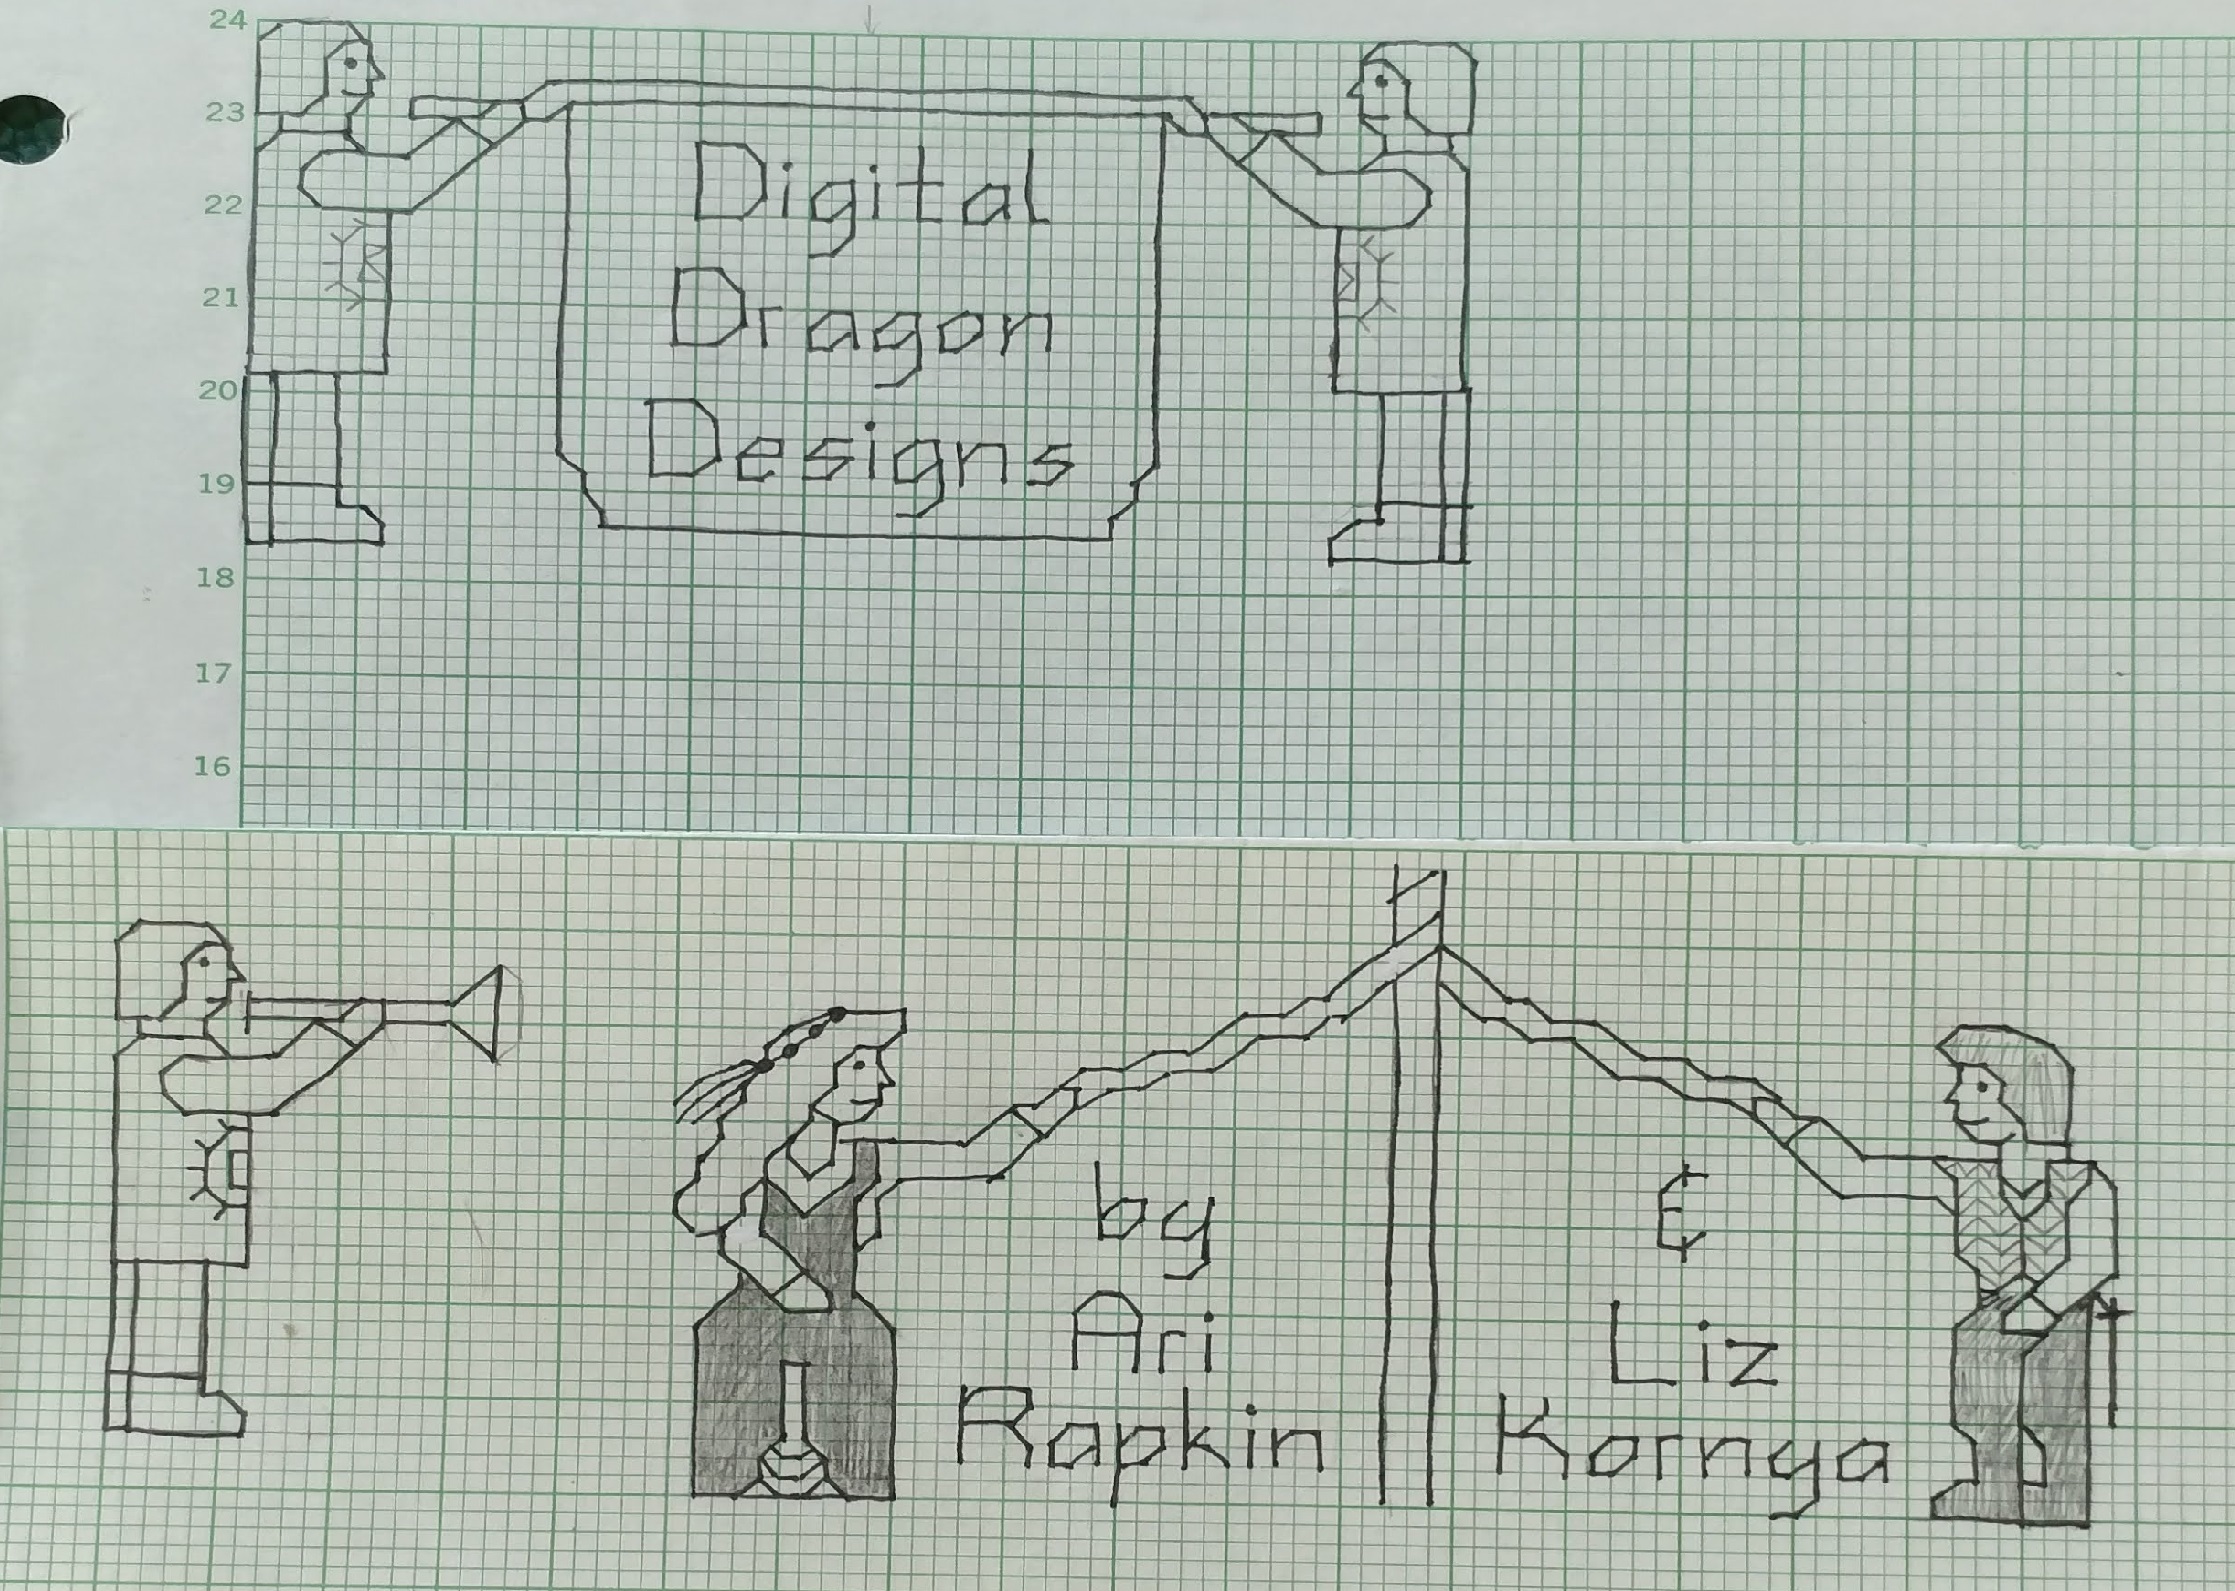 24
23
22
21
20
19
18
17
16
Digital
Dragon
Designs
by
Ari
Rapkin
&
Liz
Kornya